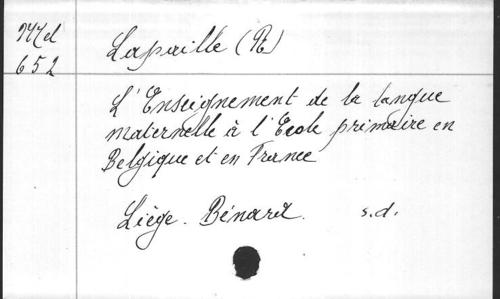 652
Lapaille (R)
L'Enseignement de la langue
maternelle à l'Ecole primaire en
Belgique et en France
Liège. Bénard. s.d.